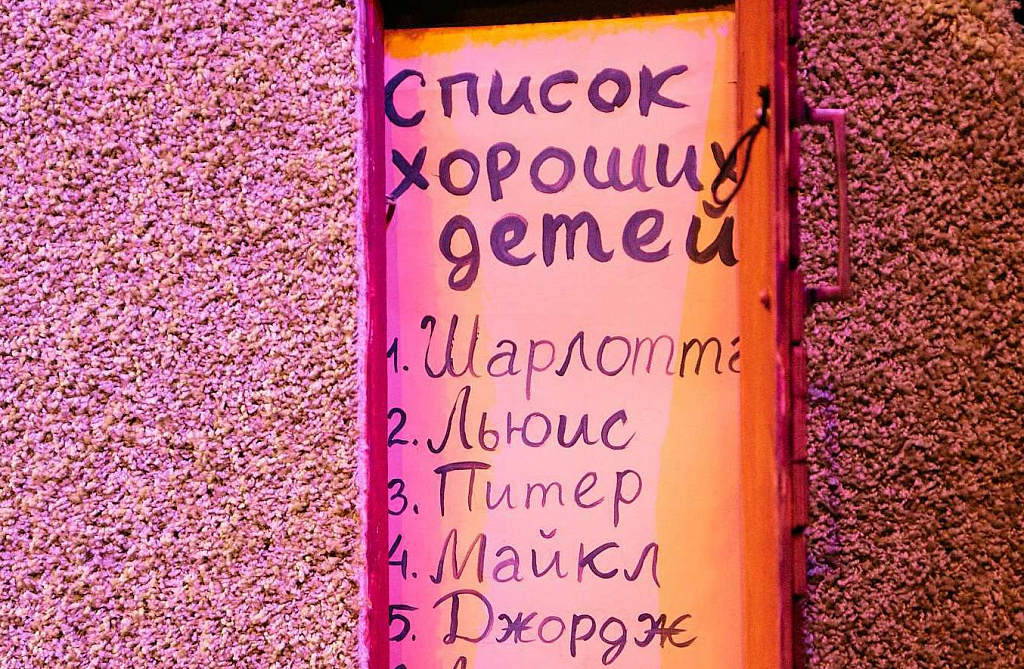 Список
хороших
детей
1. Шарлотта
2. Льюис
3. Питер
4. Майкл
5. Джордж